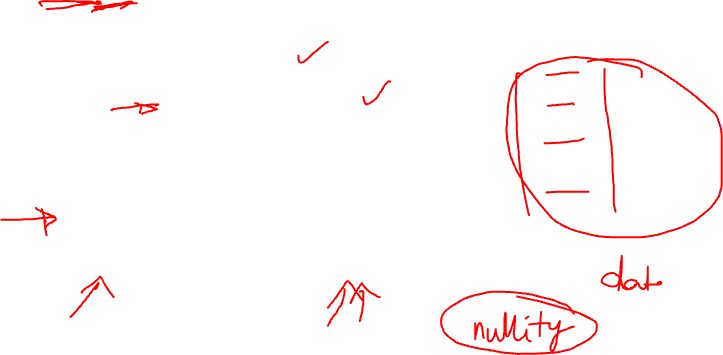 data
nullity